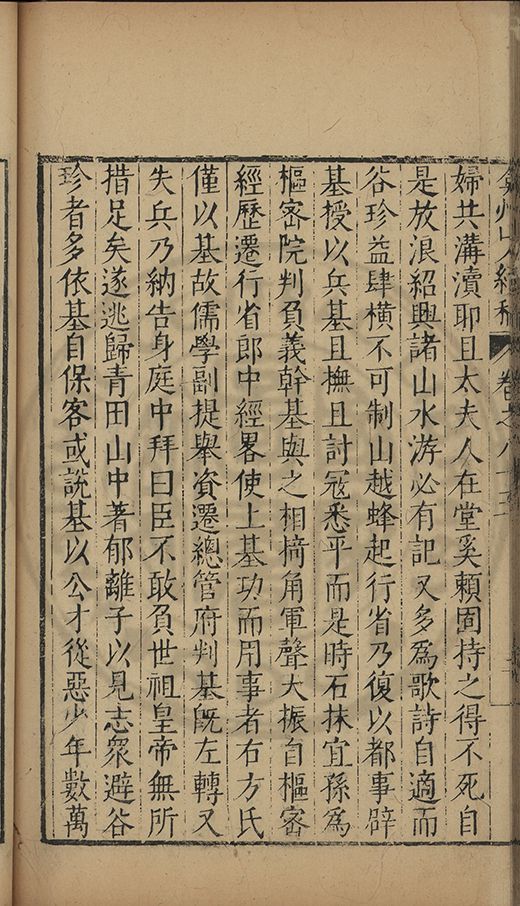 弇州山人續稿 卷之八十五
婦共溝瀆耶且太夫人在堂奚賴固持之得不死自
是放浪紹興諸山水游必有記又多為歌詩自適而
谷珍益肆橫不可制山越蜂起行省乃復以都事辟
基授以兵基且撫且討寇悉平而是時石抹宜孫為
樞密院判負義幹基與之相掎角軍聲大振自樞密
經歷遷行省郎中經畧使上基功而用事者右方氏
僅以基故儒學副提舉資遷總管府判基旣左轉又
失兵乃納告身庭中拜曰臣不敢負世祖皇帝無所
措足矣遂逃歸青田山中著郁離子以見志衆避谷
珍者多依基自保客或說基以公才從惡少年數萬